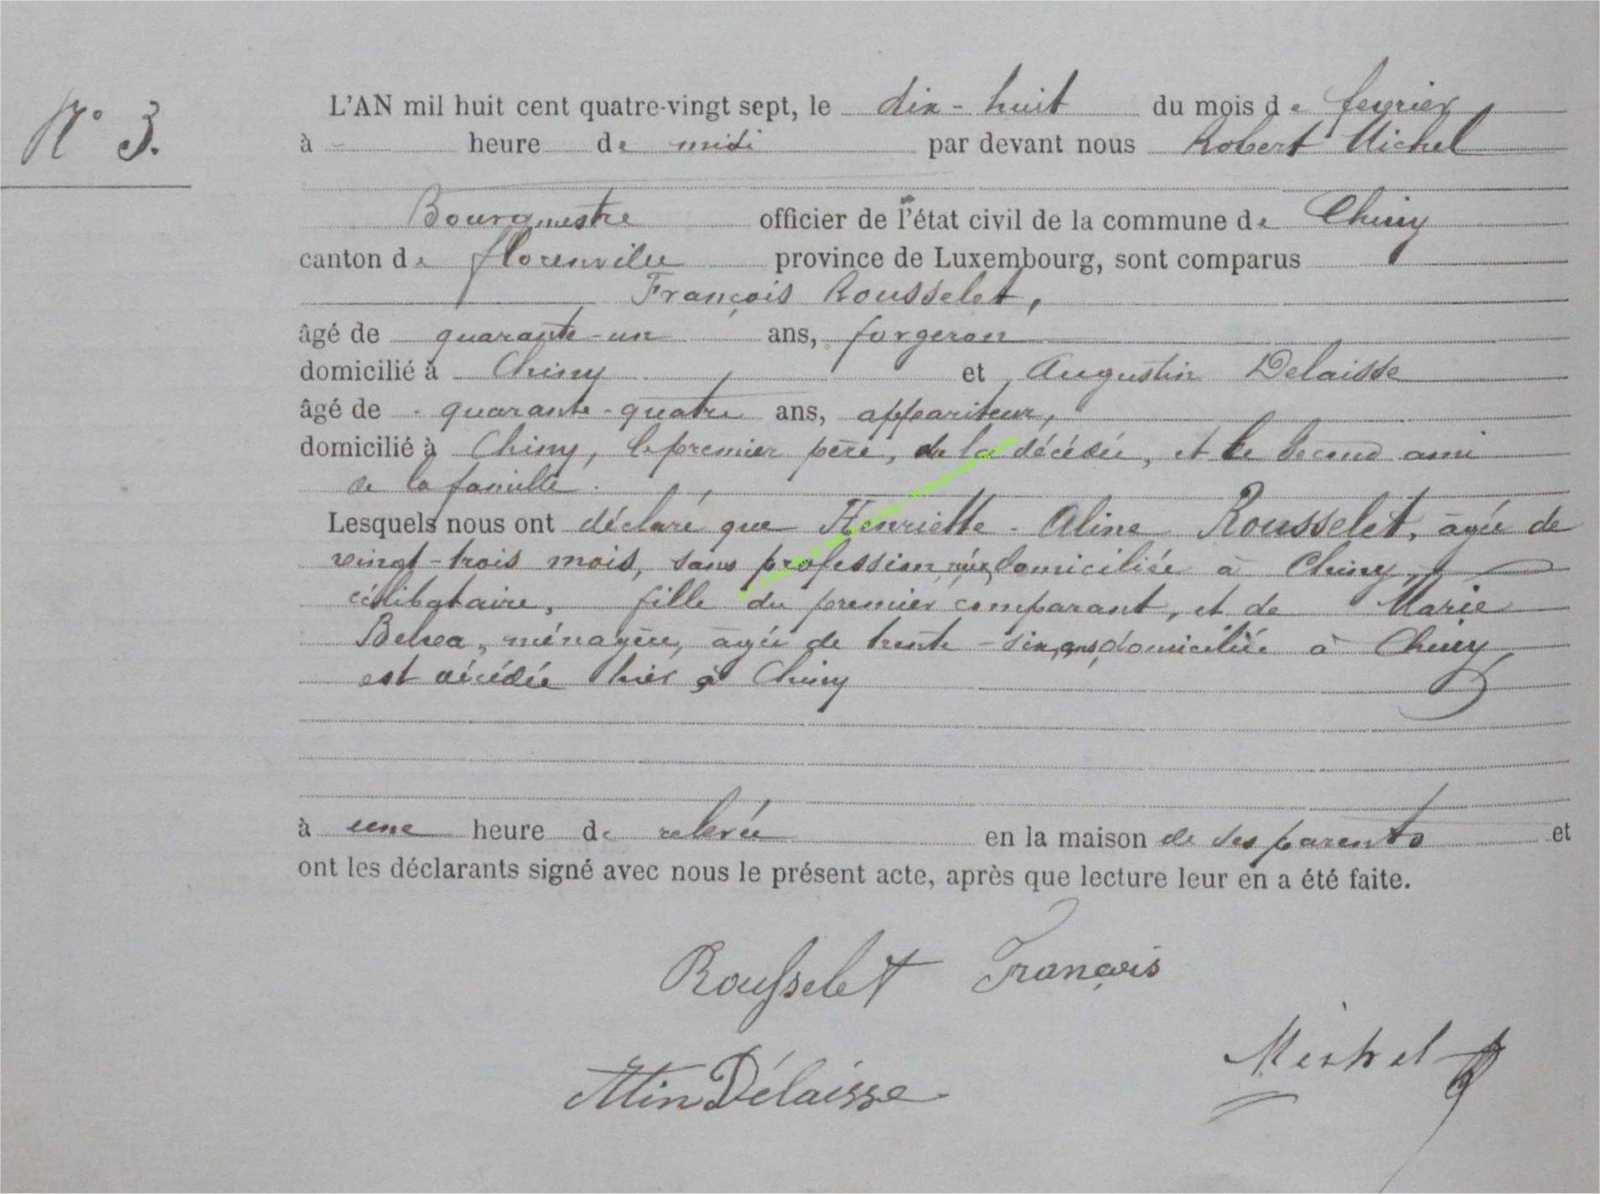 N° 3.
L'AN mil huit cent quatre-vingt sept, le dix-huit du mois de fevrier
à - heure de midi par devant nous Robert Michel
Bourgmestre officier de l'état civil de la commune de Chiny
canton de florenville province de Luxembourg, sont comparus
François Rousselet,
âgé de quarante-un ans, forgeron
domicilié à Chiny et Augustin Delaisse
âgé de quarante-quatre ans, appariteur,
domicilié à Chiny, le premier père, de la décédée, et le second ami
de la famille.
Lesquels nous ont déclaré que Henriette-Aline Rousselet, âgée de
vingt-trois mois, sans profession, née, domiciliée à Chiny,
célibataire, fille du premier comparant, et de Marie
ménagère, âgée de trente-six ans, domiciliée à Chiny
est décédée hier à Chiny
à une heure de relevée en la maison de ses parents et
ont les déclarants signé avec nous le présent acte, après que lecture leur en a été faite.
Rousselet François
Michel
Atin Délaisse